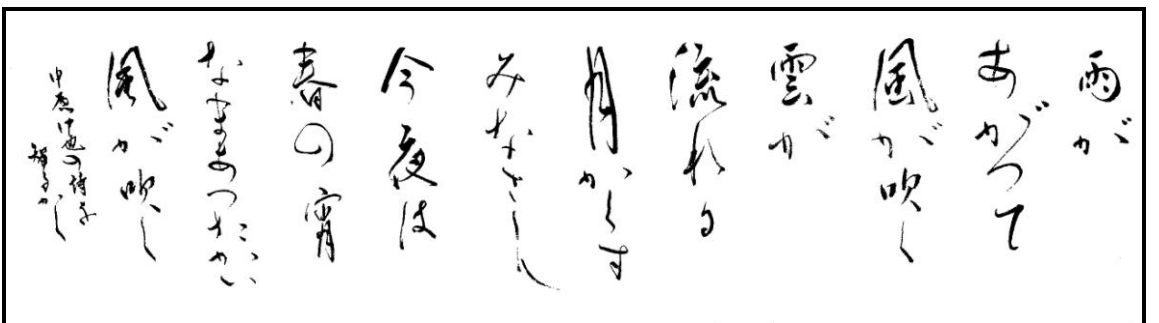 雨が
あがつて
風が吹く
雲が
流れる
月かくす
みなさん
今夜は
春の宵
なまあつたかい
風が吹く
中原中也の詩を